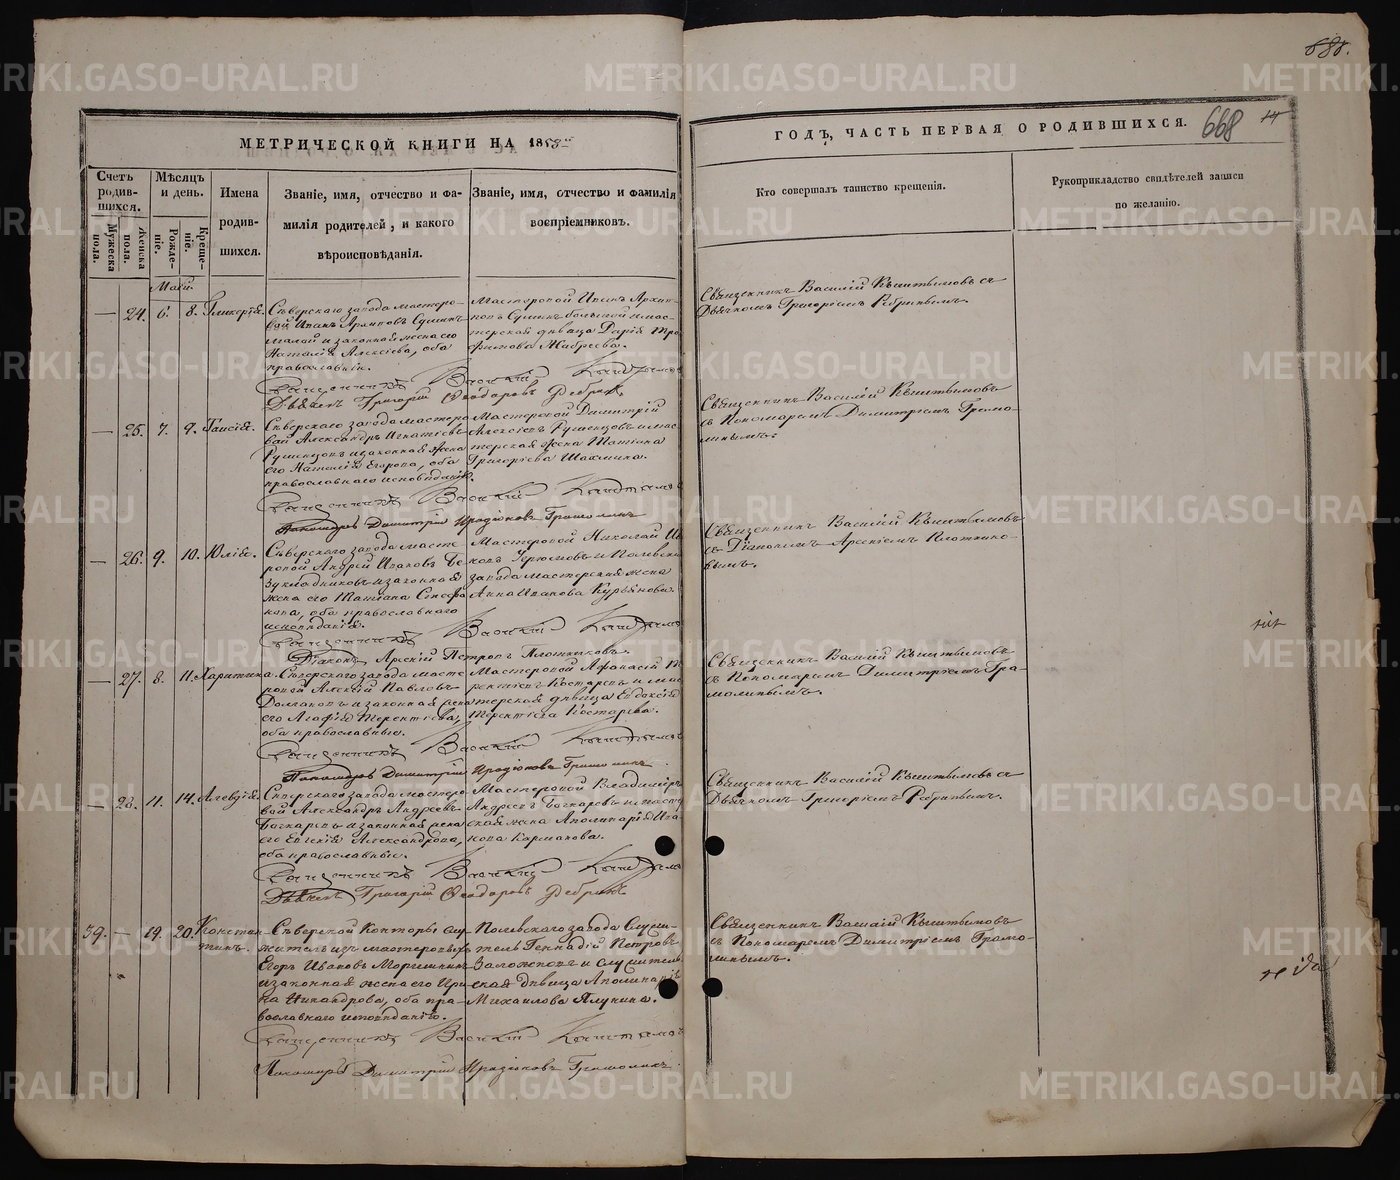 688.
668
МЕТРИЧЕСКОЙ КНИГИ НА 1858
ГОДЪ, ЧАСТЬ ПЕРВАЯ О РОДИВШИХСЯ.
Счетъ родив-
шихся.
Мужеска пола.
Женска пола.
Мѣсяцъ и день.
Рожде-
ніе.
Креще-
ніе.
Имена
родив-
шихся.
Званіе, имя, отчество и фа-
милія родителей, и какого
вѣроисповѣданія.
Званіе, имя, отчество и фамилія
воспріемниковъ.
Кто совершалъ таинство крещенія.
Рукоприкладство свидѣтелей записи
по желанію.
Маій
— 24. 6. 8. Гликерія.
Сѣверскаго завода мастеро-
вой Иванъ Архиповъ
малой и законная жена его
Наталія Алексіева, оба
православніи.
Мастеровой Иванъ Архи-
повъ большой и мас-
терская дѣвица Дарія Тро-
фимова
Священникъ Василій Кыштымовъ съ
Дьячкомъ Григоріемъ Ребринымъ.
Священникъ Василій Кыштымовъ
Дьячекъ Григорій Ѳеодоровъ
— 25. 7. 9. Таисія.
Сѣверскаго завода мастеро-
вой Александръ Игнатіевъ
и законная жена
его Наталія Егорова, оба
православнаго исповѣданія.
Мастеровой Димитрій
Алексіевъ и мас-
терская жена Татіана
Григоріева
Священникъ Василій Кыштымовъ
съ Пономаремъ Димитріемъ Грамо-
линымъ.
Священникъ Василій Кыштымовъ
Пономарь Димитрій Иродіоновъ Грамолинъ
— 26. 9. 10. Юлія.
Сѣверскаго завода масте-
ровой Андрей Ивановъ Бе-
зукладниковъ и законная
жена его Татіана
оба православнаго
исповѣданія.
Мастеровой Николай
и Полевскаго
завода мастерская жена
Анна Иванова Курьянова.
Священникъ Василій Кыштымовъ
съ Діакономъ Арсеніемъ Плотнико-
вымъ.
Священникъ Василій Кыштымовъ
Діаконъ Арсеній Петровъ Плотниковъ.
— 27. 8. 11. Харитина.
Сѣверскаго завода масте-
ровой Алексій Павловъ
Долгановъ и законная жена
его Агафія Терентіева,
оба православные.
Мастеровой Афанасій Те-
рентіевъ Костаревъ и мас-
терская дѣвица Евдокія
Терентіева Костарева.
Священникъ Василій Кыштымовъ
съ Пономаремъ Димитріемъ Гра-
молинымъ.
Священникъ Василій Кыштымовъ
Пономарь Димитрій Иродіоновъ Грамолинъ
— 28. 11. 14.
Сѣверскаго завода мастеро-
вой Александръ Андреевъ
Бочкаревъ и законная жена
его Евгенія Александрова,
оба православные.
Мастеровой Владиміръ
Андреевъ Бочкаревъ и мастер-
ская жена Аполинарія Ива-
нова Карманова.
Священникъ Василій Кыштымовъ съ
Дьячкомъ Григоріемъ Ребринымъ.
Священникъ Василій Кыштымовъ
Дьячекъ Григорій Ѳеодоровъ
39. — 19. 20. Констан-
тинъ.
Сѣверской Конторы слу-
житель изъ мастеровыхъ
Егоръ Ивановъ
и законная жена его Ири-
на Никандрова, оба пра-
вославнаго исповѣданія.
Полевскаго завода служи-
тель Геннадій Петровъ
и служитель-
ская дѣвица Аполинарія
Михайлова
Священникъ Василій Кыштымовъ
съ Пономаремъ Димитріемъ Грамо-
линымъ.
Священникъ Василій Кыштымовъ
Пономарь Димитрій Иродіоновъ Грамолинъ
METRIKI.GASO-URAL.RU